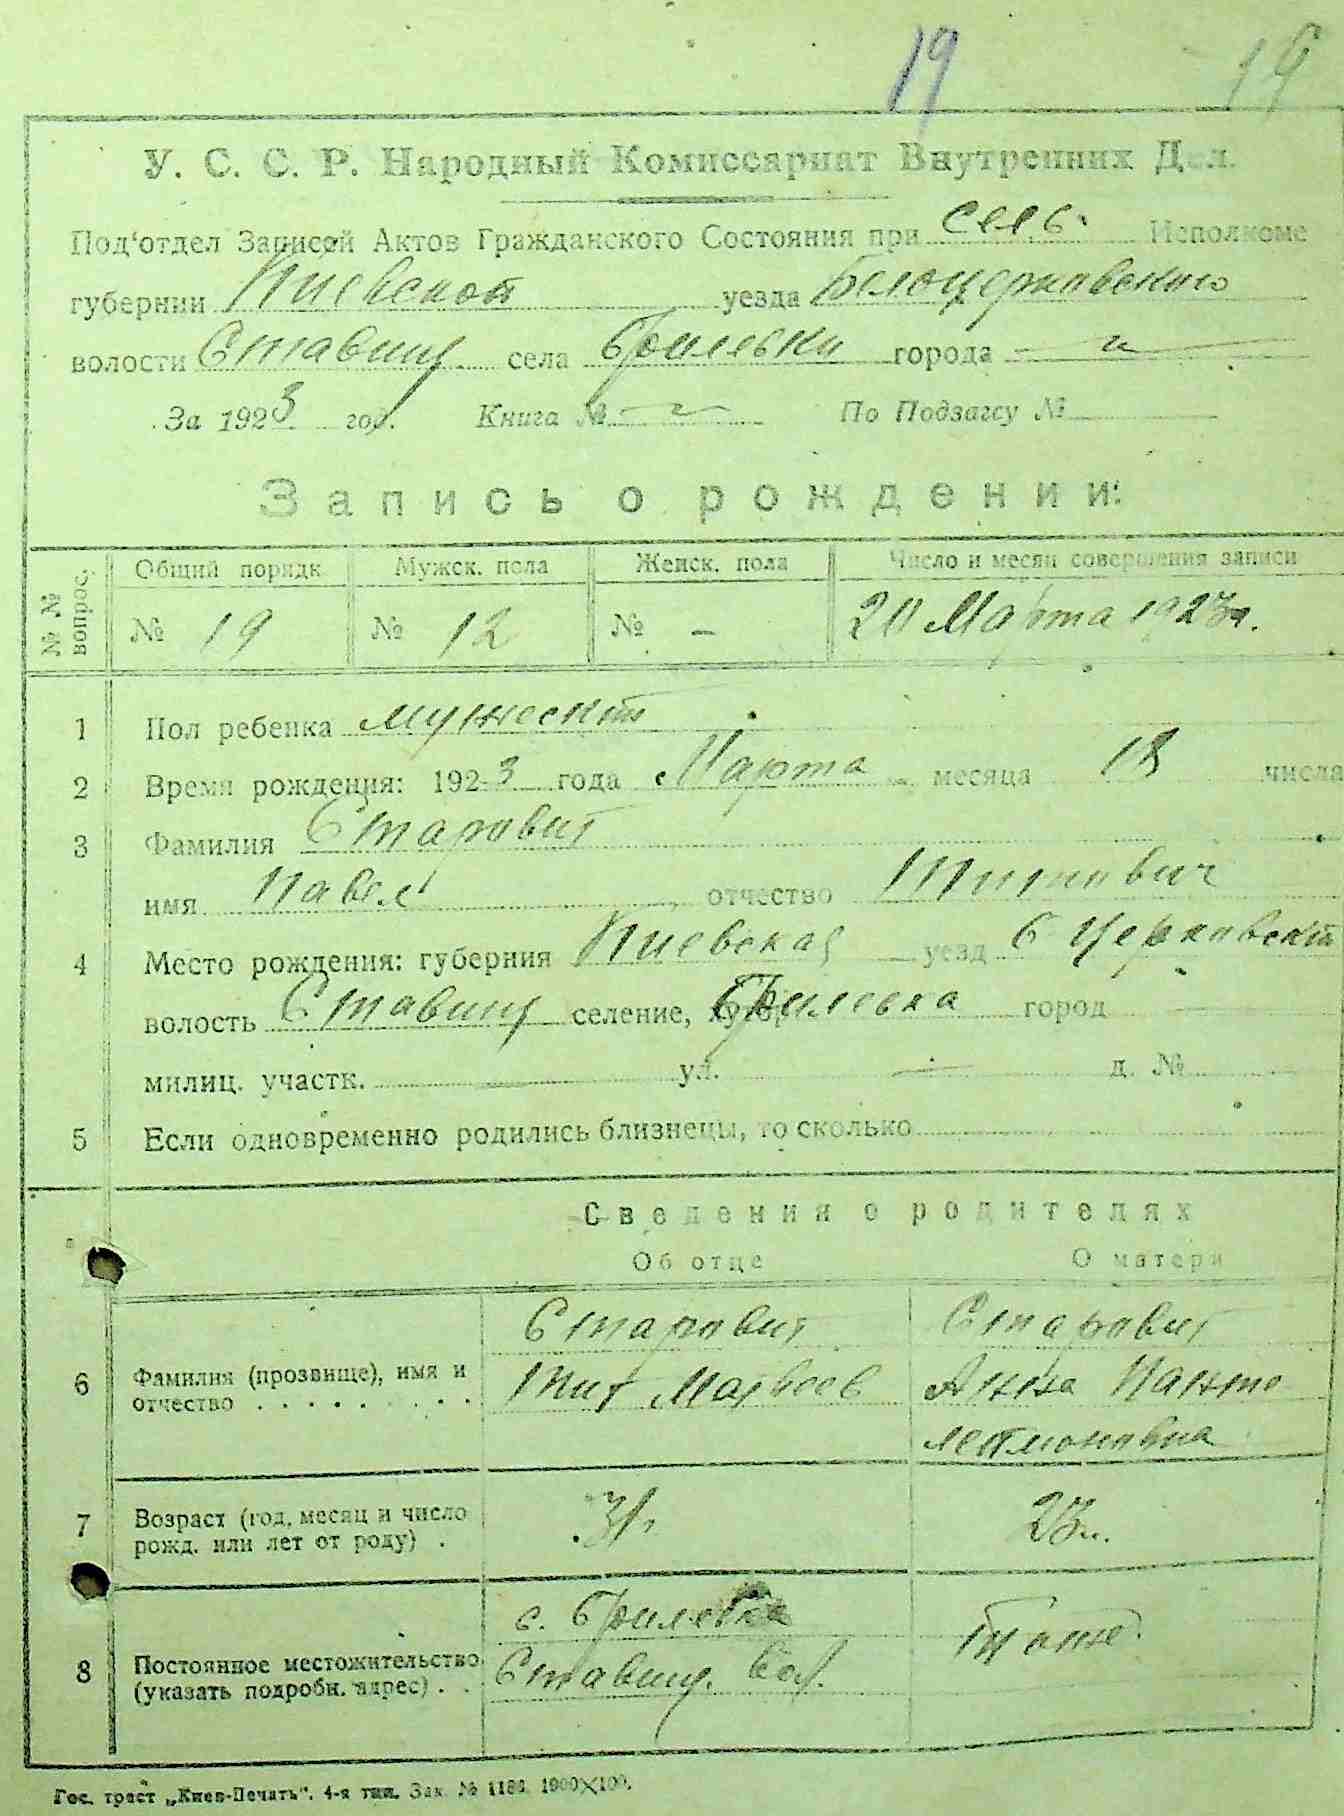 19 19
У. С. С. Р. Народный Комиссариат Внутренних Дел.
Под'отдел Записей Актов Гражданского Состояния при сель. Исполкоме
губернии Киевской уезда Белоцерковского
волости Ставищ. села Брилевки города —"—
За 1923 год. Книга № По Подзагсу №
Запись о рождении:
№ № вопрос. Общий порядк Мужск. пола Женск. пола Число и месяц совершения записи
№ 19 № 12 № - 20 Марта 1923 г.
1 Пол ребенка мужеский
2 Время рождения: 1923 года Марта месяца 18 числа
3 Фамилия Старовит
имя Павел отчество Титович
4 Место рождения: губерния Киевская уезд Б Церковский
волость Ставищ селение, хутор Брилевка город
милиц. участк. — ул. — д. №
5 Если одновременно родились близнецы, то сколько
Сведения о родителях
Об отце О матери
6 Фамилия (прозвище), имя и отчество . . . . . . . . .
Старовит Старовит
Тит Матвеев Анна Панте
леймоновна
7 Возраст (год, месяц и число рожд. или лет от роду) . 31. 23 г.
8 Постоянное местожительство (указать подробн. адрес) . .
с. Брилевка тоже.
Ставищ. вол.
Гос. трест „Киев-Печать". 4-я тип. Зак. № 1186. 1000×100.